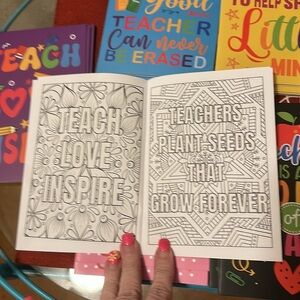 TEACH
Good
TEACHER
Can never
BE ERASED
TO HELP SH
Littl
MIN
TEACH
LOVE
INSPIRE
TEACHERS
PLANT SEEDS
THAT
GROW FOREVER